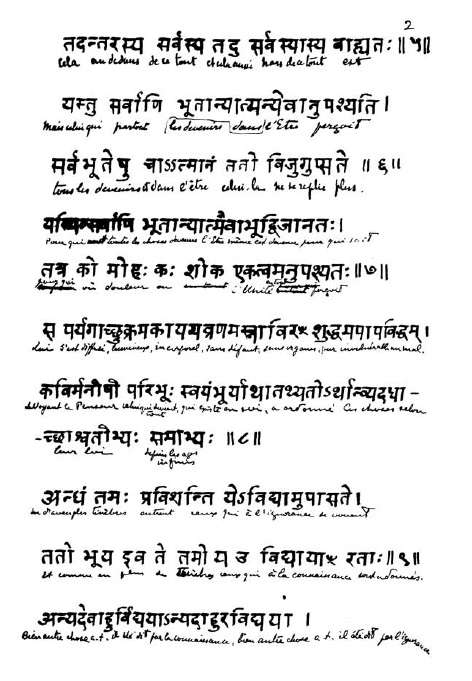 2
तदन्तरस्य सर्वस्य तदु सर्वस्यास्य बाह्यतः ॥५॥
cela au dedans de ce tout cela aussi hors de ce tout est
यस्तु सर्वाणि भूतान्यात्मन्येवानुपश्यति ।
Mais celui qui partout les devenirs dans l'Etre perçoit
सर्वभूतेषु चाऽऽत्मानं ततो विजुगुप्सते ॥६॥
tous les devenirs dans l'être celui-là ne se replie plus.
यस्मिन्सर्वाणि भूतान्यात्मैवाभूद्विजानतः ।
Pour qui toutes les choses l'Etre même est devenu pour qui sait
तत्र को मोहः कः शोक एकत्वमनुपश्यतः ॥७॥
où douleur ou l'Unité perçoit
स पर्यगाच्छुक्रमकायमव्रणमस्नाविरँ शुद्धमपापविद्धम् ।
Lui s'est diffusé, lumineux, incorporel, sans défaut, sans organes, pur invulnérable au mal.
कविर्मनीषी परिभूः स्वयंभूर्याथातथ्यतोऽर्थान्व्यदधा-
le Voyant le Penseur celui qui devient tout, qui existe en soi, a ordonné les choses selon
-च्छाश्वतीभ्यः समाभ्यः ॥८॥
leur loi depuis les ages infinis
अन्धं तमः प्रविशन्ति येऽविद्यामुपासते ।
en d'aveugles ténèbres entrent ceux qui à l'ignorance se vouent
ततो भूय इव ते तमो य उ विद्यायाँ रताः ॥९॥
et comme en plus de ténèbres ceux qui à la connaissance sont adonnés.
अन्यदेवाहुर्विद्ययाऽन्यदाहुरविद्यया ।
Bien autre chose a.t. il été dit par la connaissance, bien autre chose a.t. il été dit par l'ignorance